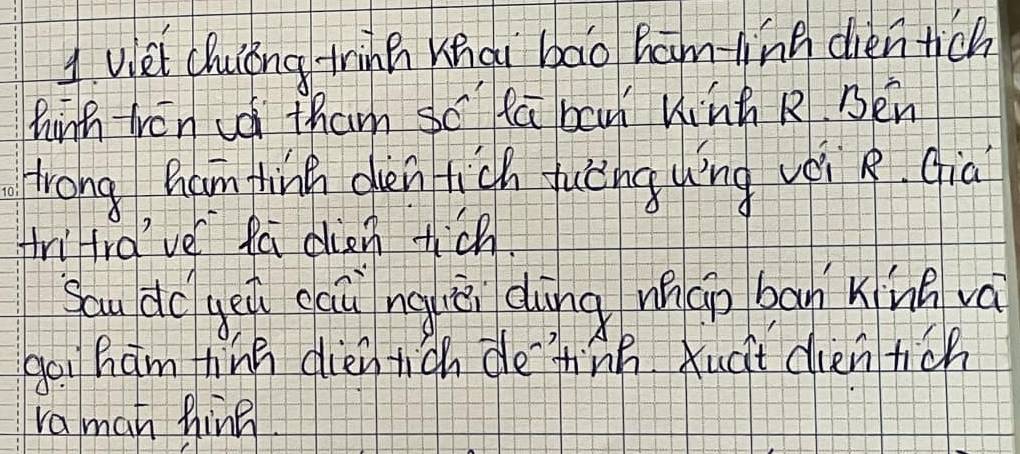 1. Viết chương trình khai báo hàm tính diện tích
hình tròn với tham số là bán kính R. Bên
trong hàm tính diện tích tương ứng với R. Giá
trị trả về là diện tích.
Sau đó yêu cầu người dùng nhập bán kính và
gọi hàm tính diện tích để tính. Xuất diện tích
ra màn hình.